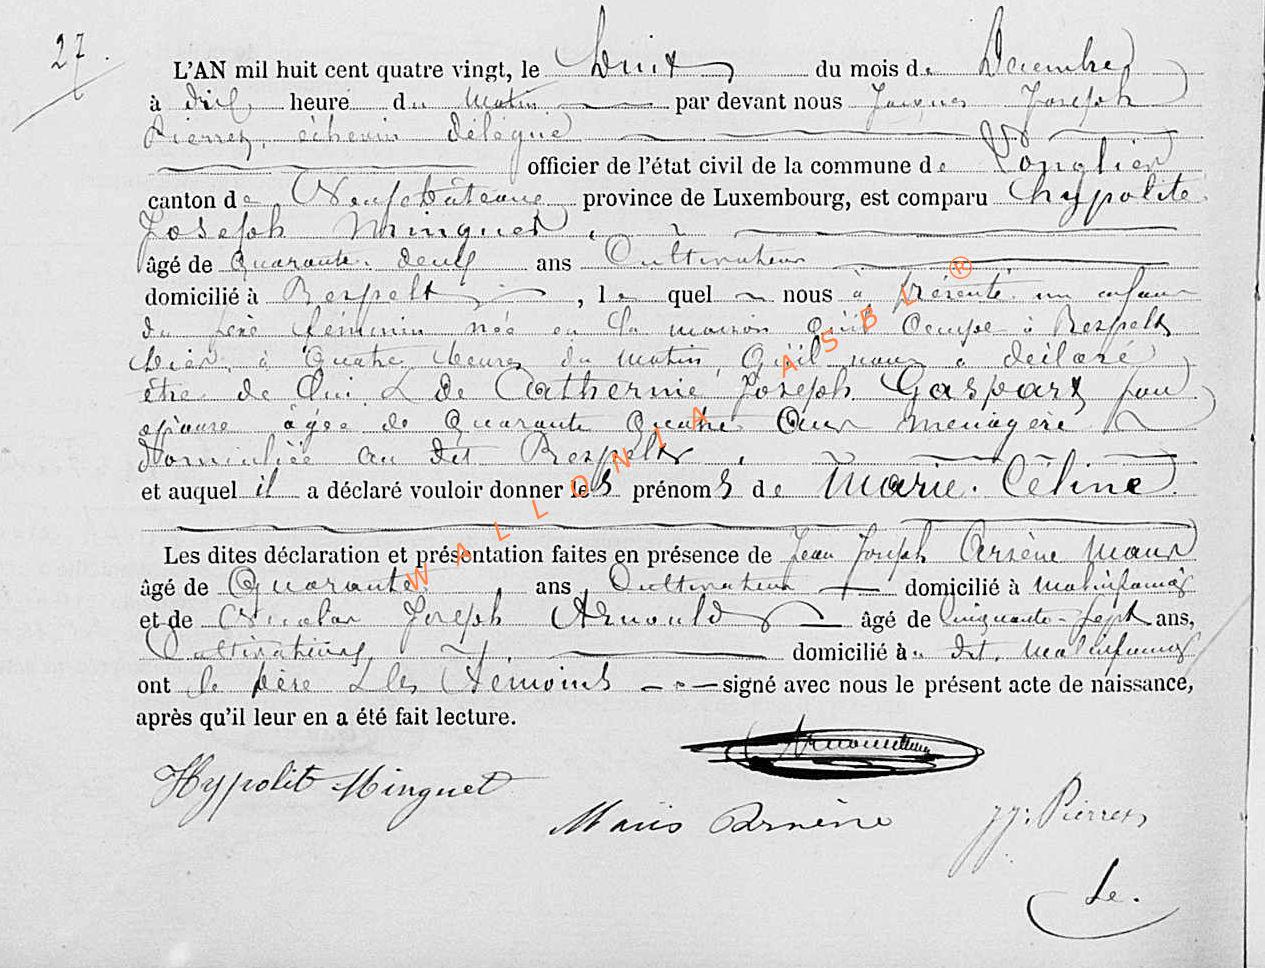 27.
L'AN mil huit cent quatre vingt, le huit du mois de Decembre
à dix heure du matin par devant nous Jacques Joseph
Pierret, échevin délégué
officier de l'état civil de la commune de Longlier
canton de Neufchâteau province de Luxembourg, est comparu hypolite
Joseph Minguet,
âgé de quarante deux ans Cultivateur
domicilié à Respelt, le quel nous à présenté un enfant
du sexe féminin née en la maison qu'il occupe à Respelt
hier à quatre heures du matin, qu'il nous a déclaré
être de lui & de Catherine Joseph Gaspart son
épouse âgée de quarante quatre ans ménagère
domiciliée au dit Respelt,
et auquel il a déclaré vouloir donner les prénoms de Marie. Céline.
Les dites déclaration et présentation faites en présence de Jean Joseph Arsène
âgé de Quarante ans Cultivateur domicilié à
et de Nicolas Joseph Arnould âgé de cinquante-sept ans,
Cultivateurs, domicilié à dit.
ont le père & les témoins signé avec nous le présent acte de naissance,
après qu'il leur en a été fait lecture.
Hypolit Minguet
Arsène
JJ: Pierret
Le.
WALLONIA ASBL ®